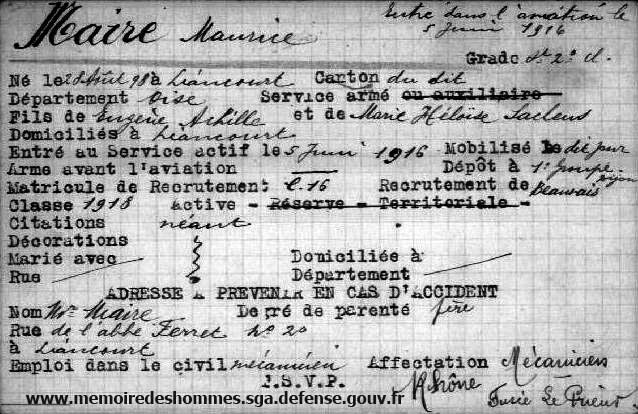 Maire Maurice Entré dans l'aviation le
5 Juin 1916
Grade St. 2e cl.
Né le 28 Août 98 à Liancourt Canton du dit
Département Oise Service armé ou auxiliaire
Fils de Eugène Achille et de Marie Héloïse
Domiciliés à Liancourt
Entré au Service actif le 5 Juin 1916 Mobilisé le dit jour
Arme avant l'aviation — Dépôt à 1er groupe Dijon
Matricule de Recrutement C.16 Recrutement de Beauvais
Classe 1918 Active - Réserve - Territoriale -
Citations néant
Décorations
Marié avec Domiciliée à
Rue Département
ADRESSE A PREVENIR EN CAS D'ACCIDENT
Nom Mr. Maire Degré de parenté père
Rue de l'abbé Ferret No 20
à Liancourt
Emploi dans le civil mécanicien Affectation Mécaniciens
T.S.V.P. Rhône
www.memoiredeshommes.sga.defense.gouv.fr